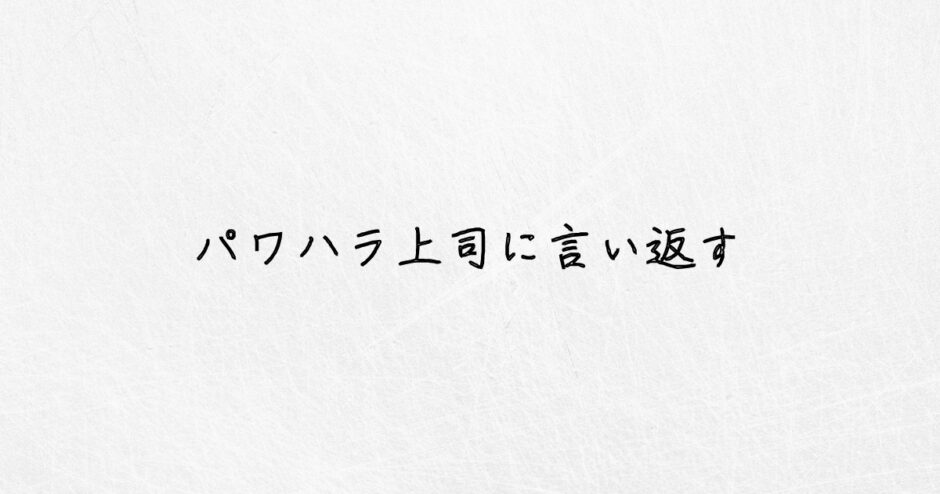 パワハラ上司に言い返す